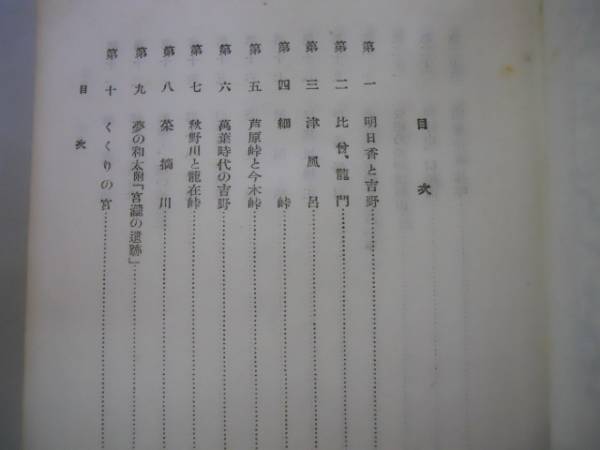 目次
第一 明日香と吉野
第二 比曾、龍門
第三 津風呂
第四 細峠
第五 芦原峠と今木峠
第六 萬葉時代の吉野
第七 秋野川と龍在峠
第八 菜摘川
第九 夢の和太附「宮瀧の遺跡」
第十 くくりの宮
目次